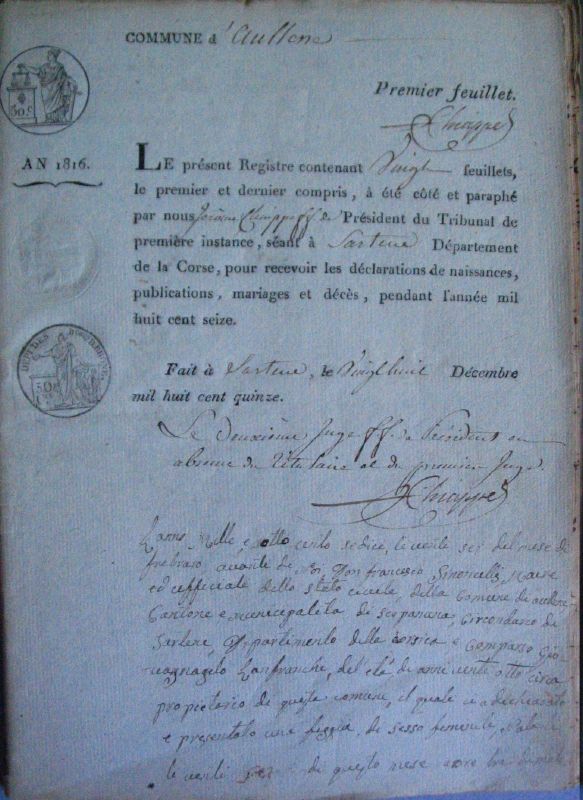 COMMUNE d'Aullene
Premier feuillet.
Chiappe
50 C.
AN 1816.
LE présent Registre contenant Vingt feuillets,
le premier et dernier compris, à été côté et paraphé
par nous Jérôme Chiappe ff. de Président du Tribunal de
première instance, séant à Sartene Département
de la Corse, pour recevoir les déclarations de naissances,
publications, mariages et décès, pendant l'année mil
huit cent seize.
Fait à Sartene, le Vingt huit Décembre
mil huit cent quinze.
Le Deuxième Juge ff. de Président en
absence du Titulaire et du premier Juge.
Chiappe
L'anno Mille e otto cento sedice, li vente sei del mese di
frebraro, avante di Noi Don francesco Simonetti Maire
ed uffiziale dello stato civile della Comune di
Cantone e municipalita di Circondario di
Sartene, Dipartimento della Corsica e Comparso Gio
Lanfranche, del età di anni vente otto circa
propietario di questa comune, il quale ci a dechiarato
e presentato una figlia di sesso feminile,
li venti sei di questo mese